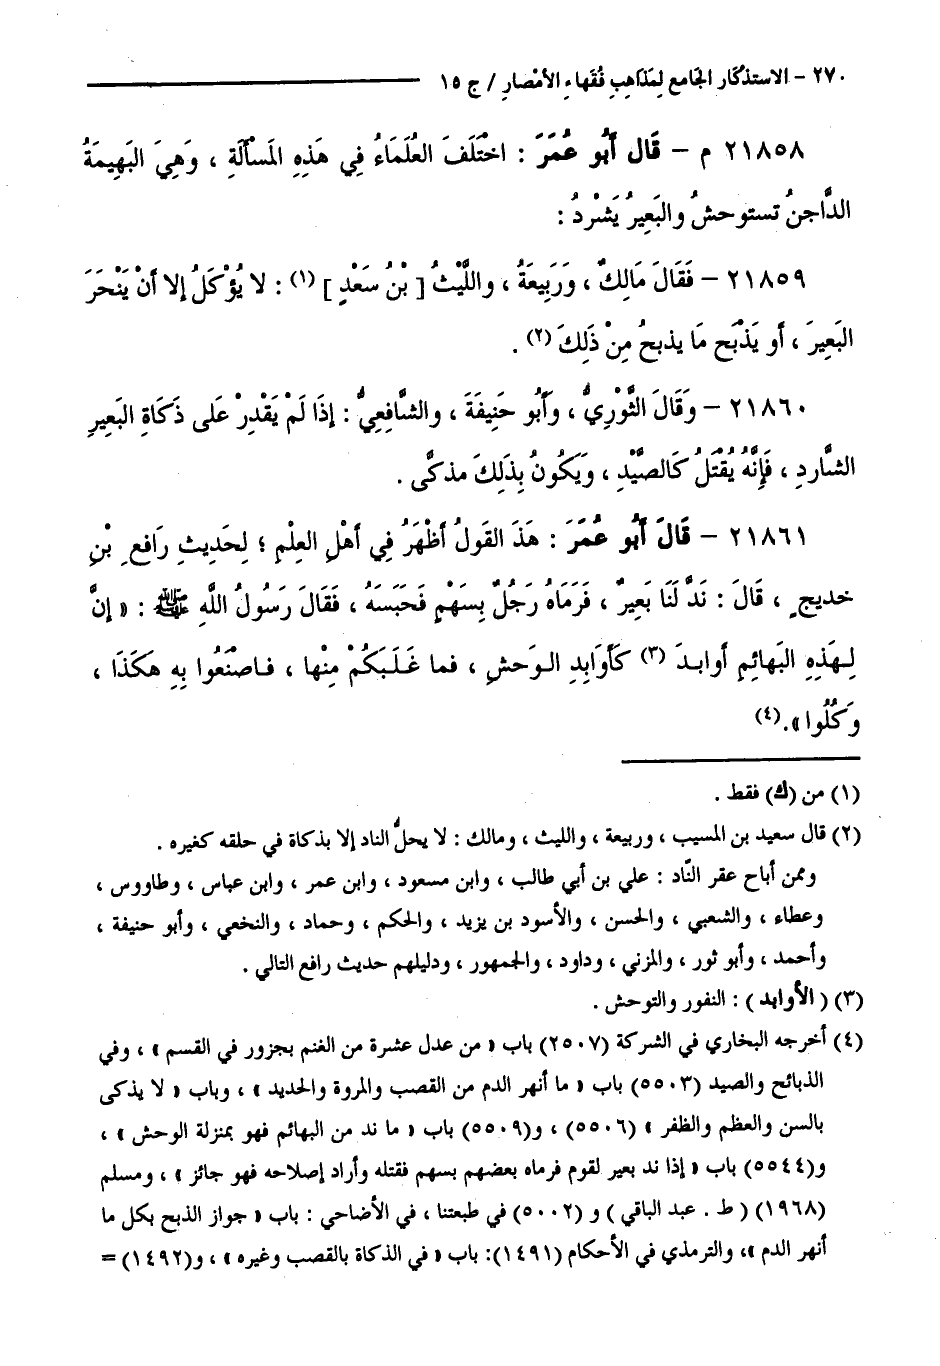 ٢٧٠ – الاستذكار الجامع لِمَذاهِبِ فُقَهاءِ الأمْصارِ / ج ١٥
٢١٨٥٨ م – قَال أَبُو عُمَرَ : اخْتَلَفَ العُلَمَاءُ فِي هَذِهِ المَسْأَلَةِ ، وَهِيَ البَهِيمَةُ
الدَّاجنُ تستوحشُ والبَعِيرُ يَشْرِدُ :
٢١٨٥٩ – فَقَالَ مَالِكٌ ، وَرَبِيعَةُ ، واللَّيْثُ [ بْنُ سَعْدٍ ] (١) : لا يُؤْكَلُ إلا أنْ يَنْحَرَ
البَعِيرَ ، أو يَذْبَح مَا يذبحُ مِنْ ذَلِكَ (٢) .
٢١٨٦٠ – وَقَالَ الثَّوْرِيُّ ، وَأَبُو حَنِيفَةَ ، والشَّافِعِيُّ : إذَا لَمْ يَقْدِرْ عَلى ذَكَاةِ البَعِيرِ
الشَّاردِ ، فَإِنَّهُ يُقْتَلُ كَالصَّيْدِ ، وَيَكُونُ بِذَلِكَ مذكَّى .
٢١٨٦١ – قَالَ أَبُو عُمَرَ : هَذَ القَولُ أظْهَرُ فِي أهْلِ العِلْمِ ؛ لِحَدِيثِ رَافِعِ بْنِ
خديجٍ ، قَالَ : نَدَّ لَنَا بَعِيرٌ ، فَرَمَاهُ رَجُلٌ بِسَهْمٍ فَحَبَسَهُ ، فَقَالَ رَسُولُ اللَّهِ ﷺ : « إنَّ
لِهَذِهِ البَهائِمِ أوابدَ (٣) كَأوَابِدِ الوَحشِ ، فما غَلَبَكُمْ مِنْها ، فاصْنَعُوا بِهِ هكَذَا ،
وَكُلُوا ».(٤)
(١) من (ك) فقط .
(٢) قال سعيد بن المسيب ، وربيعة ، والليث ، ومالك : لا يحلُّ الناد إلا بذكاة في حلقه كغيره .
وممن أباح عقر النّاد : علي بن أبي طالب ، وابن مسعود ، وابن عمر ، وابن عباس ، وطاووس ،
وعطاء ، والشعبي ، والحسن ، والأسود بن يزيد ، والحكم ، وحماد ، والنخعي ، وأبو حنيفة ،
وأحمد ، وأبو ثور ، والمزني ، وداود ، والجمهور ، ودليلهم حديث رافع التالي .
(٣) ( الأوابد ) : النفور والتوحش .
(٤) أخرجه البخاري في الشركة (٢٥٠٧) باب « من عدل عشرة من الغنم بجزور في القسم » ، وفي
الذبائح والصيد (٥٥٠٣) باب « ما أنهر الدم من القصب والمروة والحديد » ، وباب « لا يذكى
بالسن والعظم والظفر » (٥٥٠٦) ، و(٥٥٠٩) باب « ما ند من البهائم فهو بمنزلة الوحش » ،
و(٥٥٤٤) باب « إذا ند بعير لقوم فرماه بعضهم بسهم فقتله وأراد إصلاحه فهو جائز » ، ومسلم
(١٩٦٨) ( ط . عبد الباقي ) و (٥٠٠٢) في طبعتنا ، في الأضاحي : باب « جواز الذبح بكل ما
أنهر الدم »، والترمذي في الأحكام (١٤٩١): باب « في الذكاة بالقصب وغيره » ، و(١٤٩٢) =